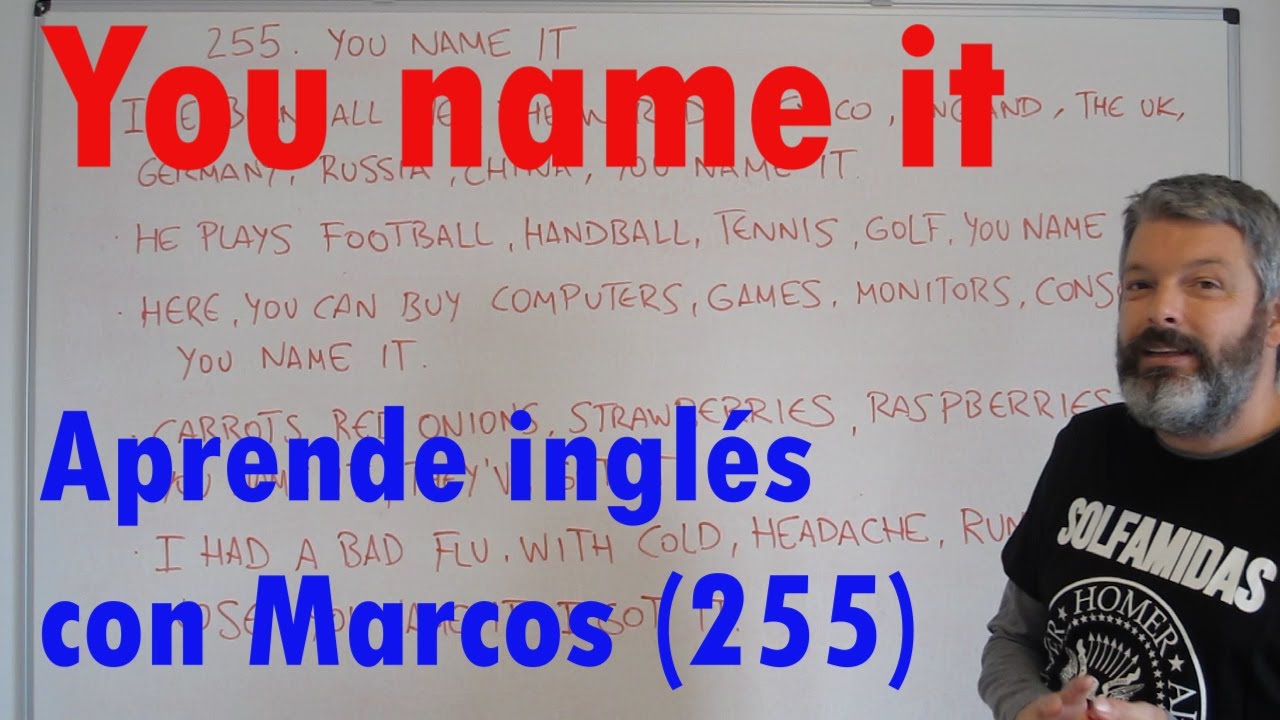 255. YOU NAME IT
You name it
ALL THE
, THE UK,
GERMANY, RUSSIA, CHINA, YOU NAME IT.
· HE PLAYS FOOTBALL, HANDBALL, TENNIS, GOLF, YOU NAME
· HERE, YOU CAN BUY COMPUTERS, GAMES, MONITORS, CONS
YOU NAME IT.
· CARROTS, RED ONIONS, STRAWBERRIES, RASPBERRIES
Aprende inglés
· I HAD A BAD FLU, WITH COLD, HEADACHE, RUN
con Marcos (255)
SOLFAMIDAS
HOMER